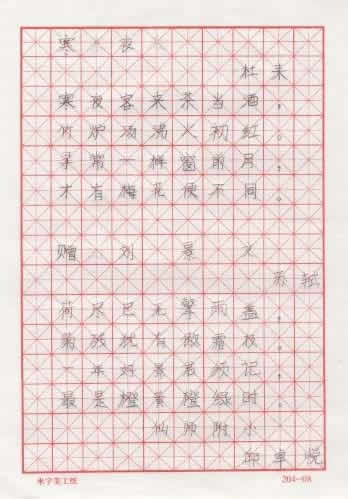 寒夜
杜耒
寒夜客来茶当酒，
竹炉汤沸火初红。
寻常一样窗前月，
才有梅花便不同。
赠刘景文
苏轼
荷尽已无擎雨盖，
菊残犹有傲霜枝。
一年好景君须记，
最是橙黄橙绿时。
仙师附小
邱卓悦
米字美工纸 204-08